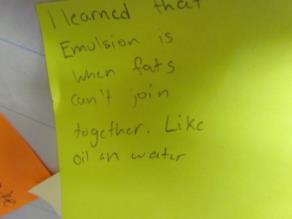 I learned that
Emulsion is
when fats
can't join
together. Like
oil an water